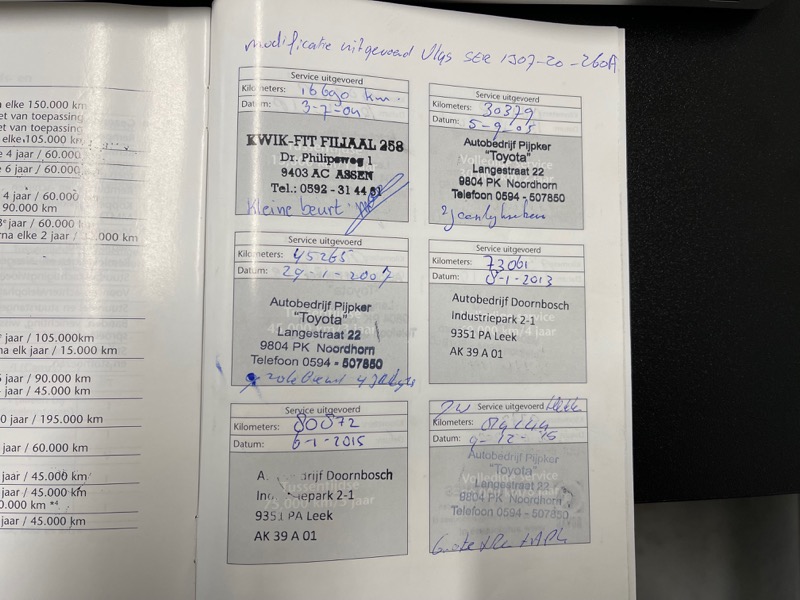 elke 150.000 km
van toepassing
et van toepassing
elke 105.000 km
e 4 jaar / 60.000
e 6 jaar / 60.000
4 jaar / 60.000
90.000 km
jaar / 60.000
rna elke 2 jaar / km
jaar / 105.000km
na elk jaar / 15.000 km
jaar / 90.000 km
jaar / 45.000 km
0 jaar / 195.000 km
jaar / 60.000 km
jaar / 45.000 km
jaar / 45.000 km
0.000 km *⁴
jaar / 45.000 km
modificatie uitgevoerd
Service uitgevoerd
Kilometers: km
Datum: 3-7-04
KWIK-FIT FILIAAL 258
Dr. Philipsweg 1
9403 AC ASSEN
Tel.: 0592 - 31 44
Kleine beurt
Service uitgevoerd
Kilometers: 30379
Datum: 5-9-05
Autobedrijf Pijpker
"Toyota"
Langestraat 22
9804 PK Noordhorn
Telefoon 0594 - 507850
Service uitgevoerd
Kilometers: 45265
Datum: 29-1-2007
Autobedrijf Pijpker
"Toyota"
Langestraat 22
9804 PK Noordhorn
Telefoon 0594 - 507850
Service uitgevoerd
Kilometers: 73061
Datum: 8-1-2013
Autobedrijf Doornbosch
Industriepark 2-1
9351 PA Leek
AK 39 A 01
Service uitgevoerd
Kilometers: 80872
Datum: 6-1-2015
A. drijf Doornbosch
Ind iepark 2-1
9351 PA Leek
AK 39 A 01
Tussentijdse
75.000 km/5 jaar
Service uitgevoerd
Kilometers:
Datum: 9-12-15
Autobedrijf Pijpker
"Toyota"
Langestraat 22
9804 PK Noordhorn
Telefoon 0594 - 507850
Volledige service